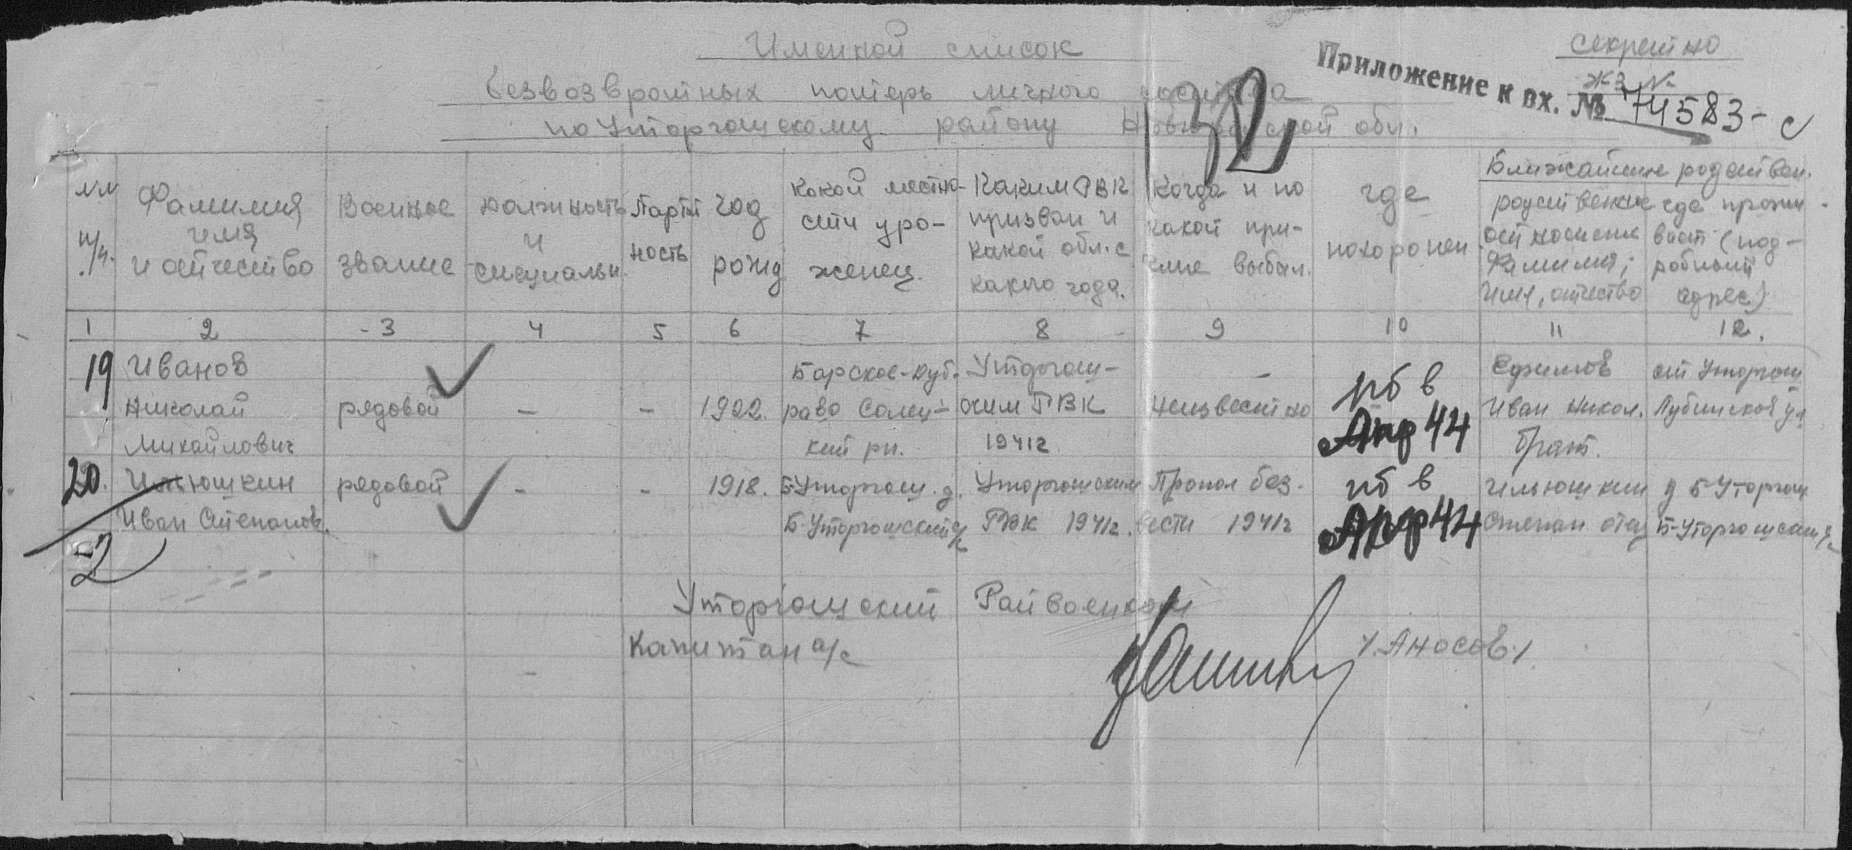 Именной список
Секретно
безвозвратных потерь личного состава
Приложение к вх. № 74583-с
по Уторгошскому району Новгородской обл.
№№ п/п.
Фамилия имя и отчество
Военное звание
Должность и специальн.
Партий ность
Год рожд
Какой местно-
сти уро-
женец
Каким РВК
призван и
какой обл. с
какого года.
Когда и по
какой при-
чине выбыл.
где
похоронен
Ближайшие родствен.
родственные
отношения
Фамилия,
имя, отчество
где прожи-
вает (под-
робный
адрес)
1 2 3 4 5 6 7 8 9 10 11 12.
19 Иванов
Николай
Михайлович
рядовой
-
-
1922.
Барское-дуб-
рово Солец-
кий рн.
Уторгош-
ским РВК
1941г
-
неизвестно
пб в
Апр 44
Ефимов
Иван Никол.
брат.
ст Уторгош
20. Ильюшкин
Иван Степанов.
рядовой
-
-
1918.
Б-Уторгош. д.
Б-Уторгошский
Уторгошским
РВК 1941г.
Пропал без-
вести 1941г
пб в
Апр 44
Ильюшкин
Степан отец
д Б-Уторгош
Б-Уторгошский
-2
Уторгошский Райвоенком
Капитан а/с
/.Аносов./